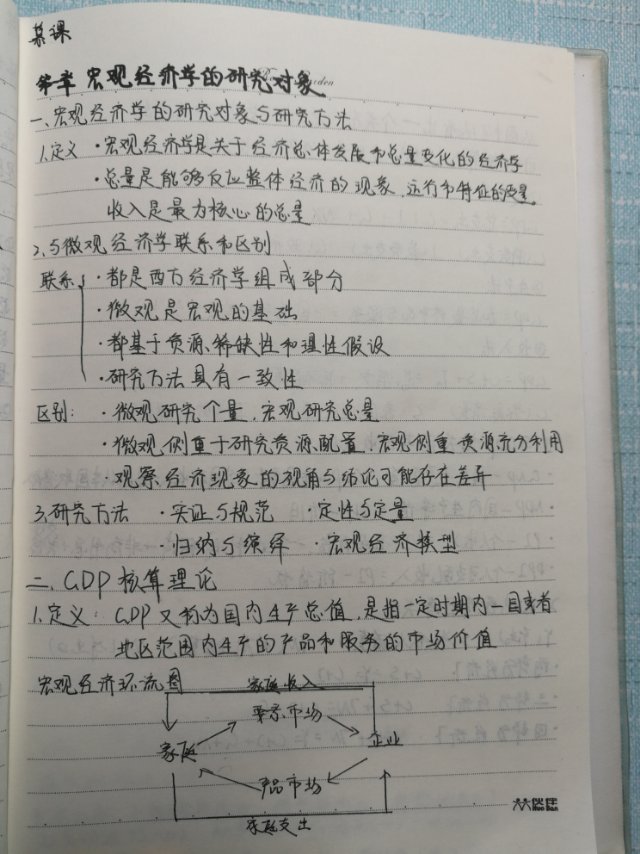 慕课
第一章 宏观经济学的研究对象
一、宏观经济学的研究对象与研究方法
1.定义 ·宏观经济学是关于经济总体发展和总量变化的经济学
·总量是能够反应整体经济的现象、运行和特征的变量。
收入是最为核心的总量
2.与微观经济学联系和区别
联系 ·都是西方经济学组成部分
·微观是宏观的基础
·都基于资源稀缺性和理性假设
·研究方法具有一致性
区别: ·微观研究个量,宏观研究总量
·微观侧重于研究资源配置,宏观侧重资源充分利用
·观察经济现象的视角与结论可能存在差异
3.研究方法 ·实证与规范 ·定性与定量
·归纳与演绎 ·宏观经济模型
二、GDP核算理论
1.定义: GDP又称为国内生产总值,是指一定时期内一国或者
地区范围内生产的产品和服务的市场价值
宏观经济环流图 家庭收入
要素市场
家庭 企业
产品市场
家庭支出